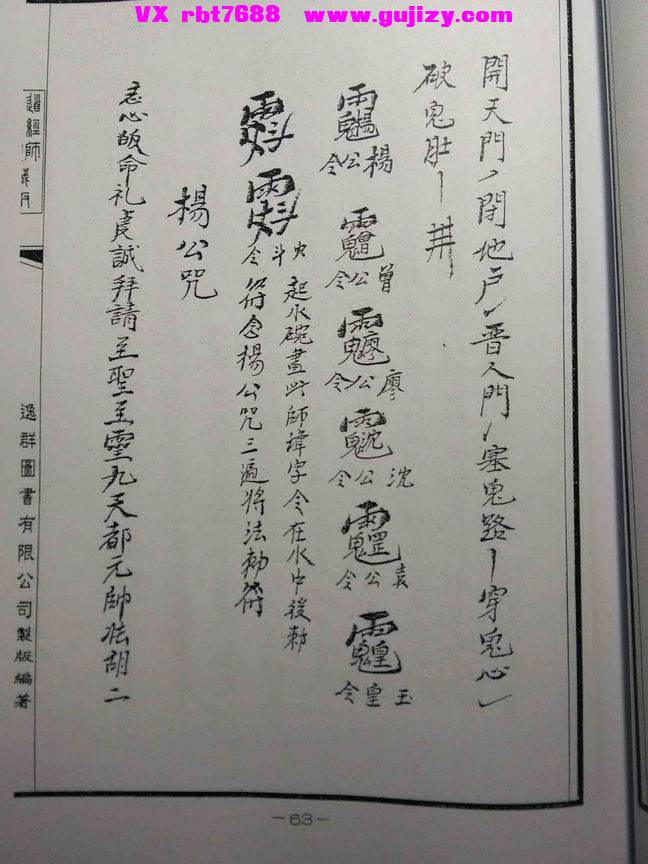 VX rbt7688 www.gujizy.com
開天門丿閉地戶丿晋人門丿塞鬼路丨穿鬼心乀
破鬼肚丨井
楊公令
曾公令
廖公令
沈公令
袁公令
玉皇令
火斗令
起水碗畫此師諱字令在水中後勅
符念楊公咒三遍將法勅符
楊公咒
志心皈命礼虔誠拜請至聖至靈九天都元帥張胡二
道經師
逸群圖書有限公司製版編著
—63—